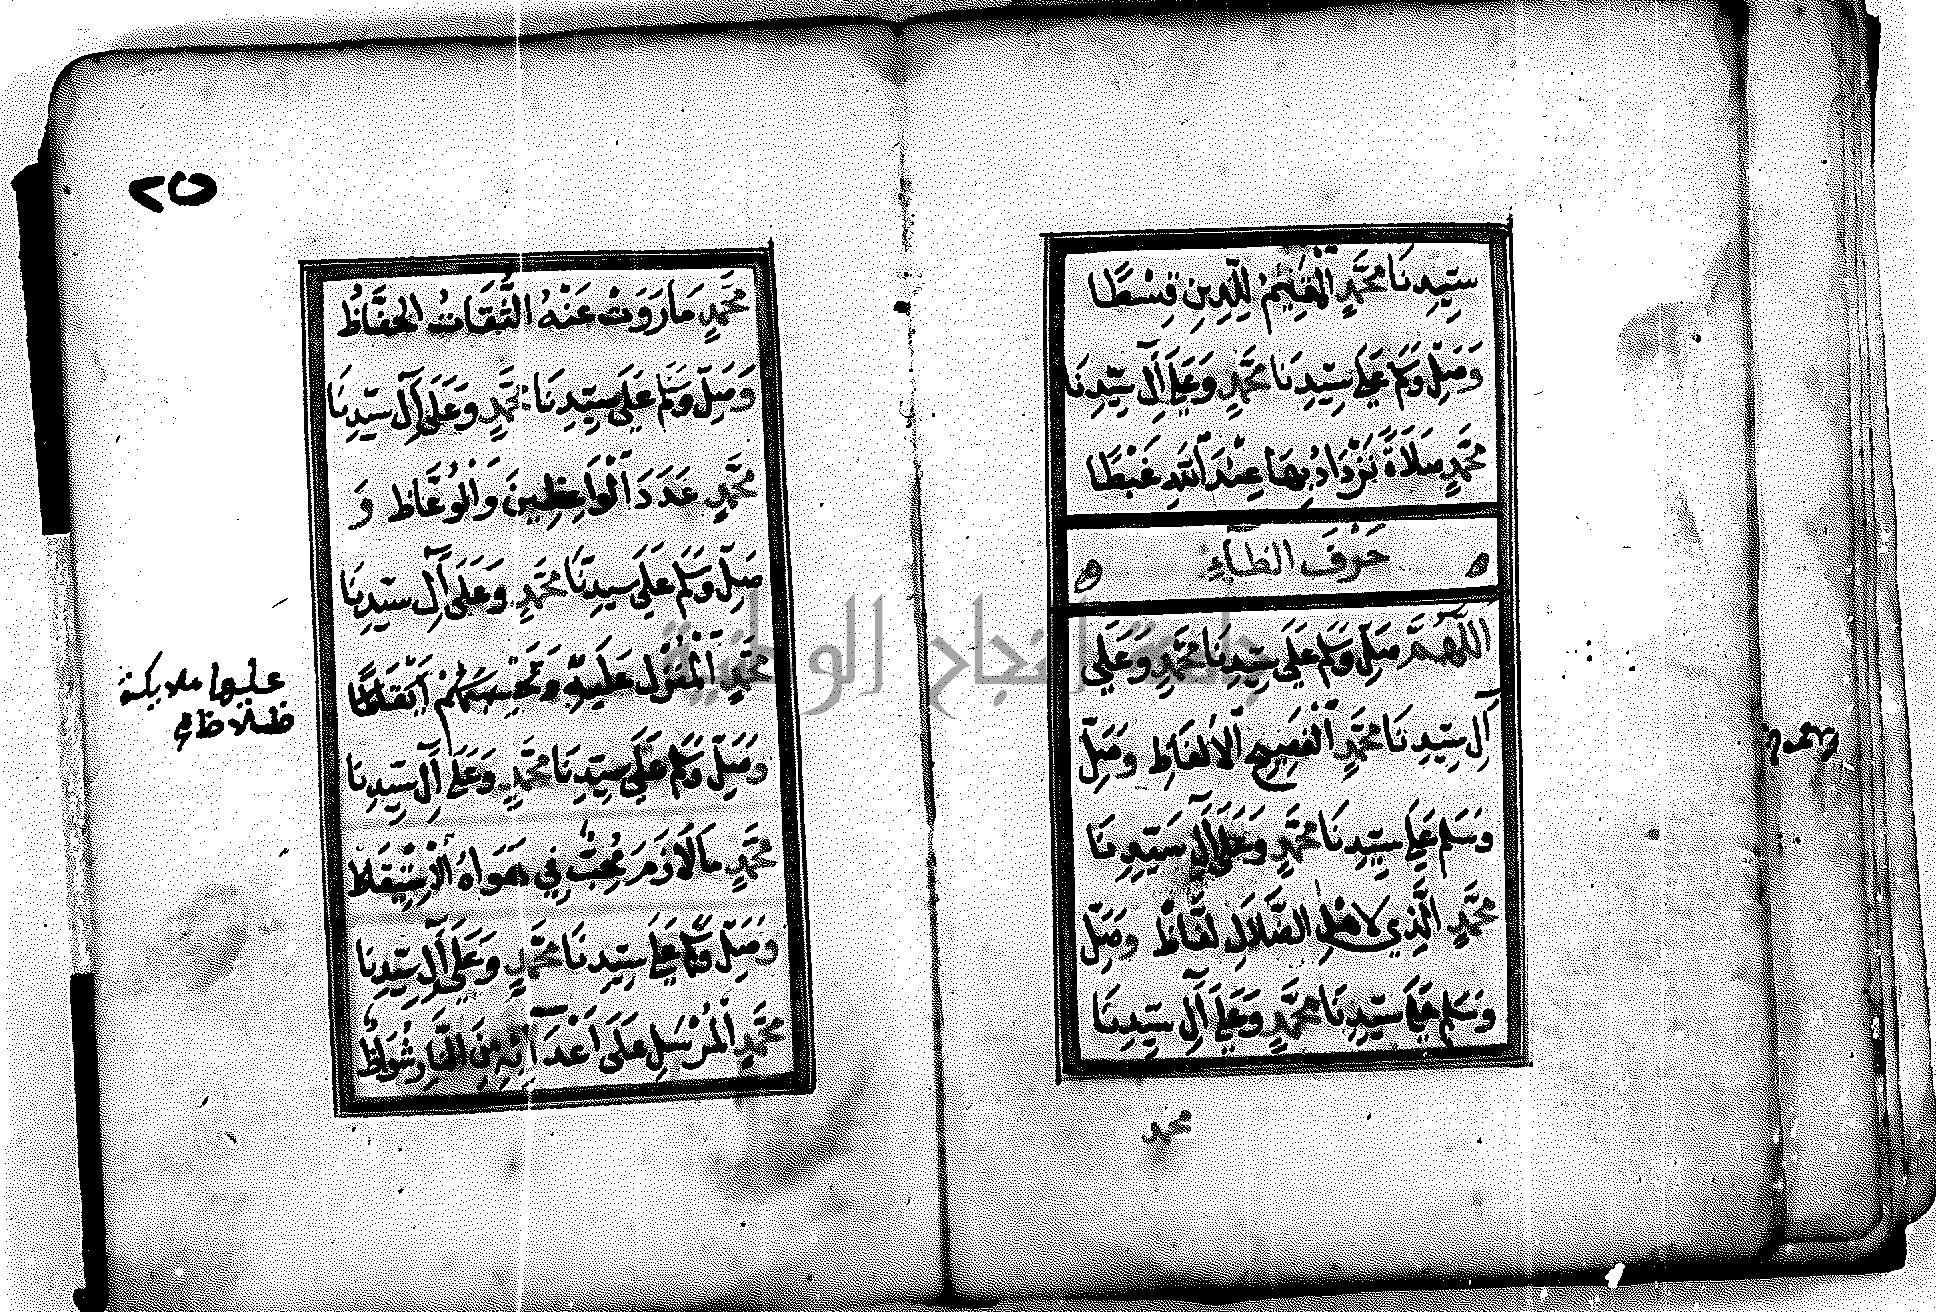 سَيِّدِنَا مُحَمَّدٍ الْمُقِيمُ لِلدِّينِ قِسْطَا
وَصَلِّ وَسَلِّم عَلَى سَيِّدِنَا مُحَمَّدٍ وَعَلَى آلِ سَيِّدِنَا
مُحَمَّدٍ صَلَاةً نَزْدَادُ بِهَا عِنْدَ اللهِ غَبْطَا
حَرْفَ الظَّاءِ
اللَّهُمَّ صَلِّ وَسَلِّم عَلَى سَيِّدِنَا مُحَمَّدٍ وَعَلَى
آلِ سَيِّدِنَا مُحَمَّدٍ الْفَصِيحِ الْأَلْفَاظِ وَصَلِّ
وَسَلِّم عَلَى سَيِّدِنَا مُحَمَّدٍ وَعَلَى آلِ سَيِّدِنَا
مُحَمَّدٍ الَّذِي لِأَهْلِ الضَّلَالِ لَفَّاظْ وَصَلِّ
وَسَلِّم عَلَى سَيِّدِنَا مُحَمَّدٍ وَعَلَى آلِ سَيِّدِنَا
محمد
٢٥
مُحَمَّدٍ مَا رَوَتْ عَنْهُ الثِّقَاتُ الْحُفَّاظُ
وَصَلِّ وَسَلِّم عَلَى سَيِّدِنَا مُحَمَّدٍ وَعَلَى آلِ سَيِّدِنَا
مُحَمَّدٍ عَدَدَ الْوَاعِظِينَ وَالْوُعَّاظِ وَ
صَلِّ وَسَلِّم عَلَى سَيِّدِنَا مُحَمَّدٍ وَعَلَى آلِ سَيِّدِنَا
مُحَمَّدٍ الْمُنْزَلِ عَلَيْهِ وَتَحْسَبُهُمْ أَيْقَاظًا
وَصَلِّ وَسَلِّم عَلَى سَيِّدِنَا مُحَمَّدٍ وَعَلَى آلِ سَيِّدِنَا
مُحَمَّدٍ مَا لَازَمَ مُحِبٌّ فِي هَوَاهُ الْاِسْتِيقَاظ
وَصَلِّ وَسَلِّم عَلَى سَيِّدِنَا مُحَمَّدٍ وَعَلَى آلِ سَيِّدِنَا
مُحَمَّدٍ الْمُرْسَلِ عَلَى أَعْدَآئِهِ مِنَ النَّارِ شُوَاظُ
عليها ملايكة
غلاظ
جامعة النجاح الوطنية